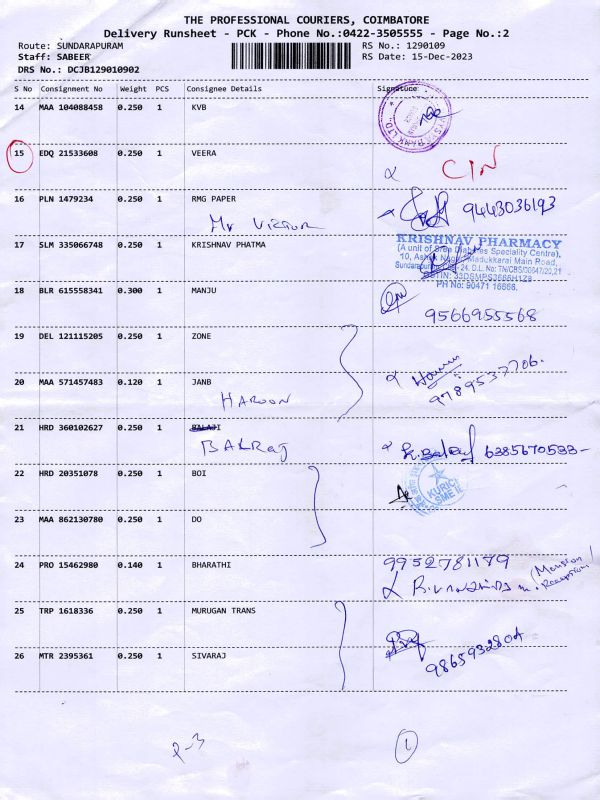 THE PROFESSIONAL COURIERS, COIMBATORE
Delivery Runsheet - PCK - Phone No.:0422-3505555 - Page No.:2
Route: SUNDARAPURAM RS No.: 1290109
Staff: SABEER RS Date: 15-Dec-2023
DRS No.: DCJB129010902
S No Consignment No Weight PCS Consignee Details Signature
14 MAA 104088458 0.250 1 KVB
15 EDQ 21533608 0.250 1 VEERA
CIN
16 PLN 1479234 0.250 1 RMG PAPER
Mr Victor 9443036193
17 SLM 335066748 0.250 1 KRISHNAV PHATMA
KRISHNAV PHARMACY
(A unit of Sree Diabetes Speciality Centre),
Madukkarai Main Road,
PH No: 90471 16666.
18 BLR 615558341 0.300 1 MANJU
9566955568
19 DEL 121115205 0.250 1 ZONE
20 MAA 571457483 0.120 1 JANB
HAROON 9789537706.
21 HRD 360102627 0.250 1 BALAJI
BALRAJ 6385670533-
22 HRD 20351078 0.250 1 BOI
23 MAA 862130780 0.250 1 DO
24 PRO 15462980 0.140 1 BHARATHI
9952781179
(Mansion Reception)
25 TRP 1618336 0.250 1 MURUGAN TRANS
26 MTR 2395361 0.250 1 SIVARAJ
1